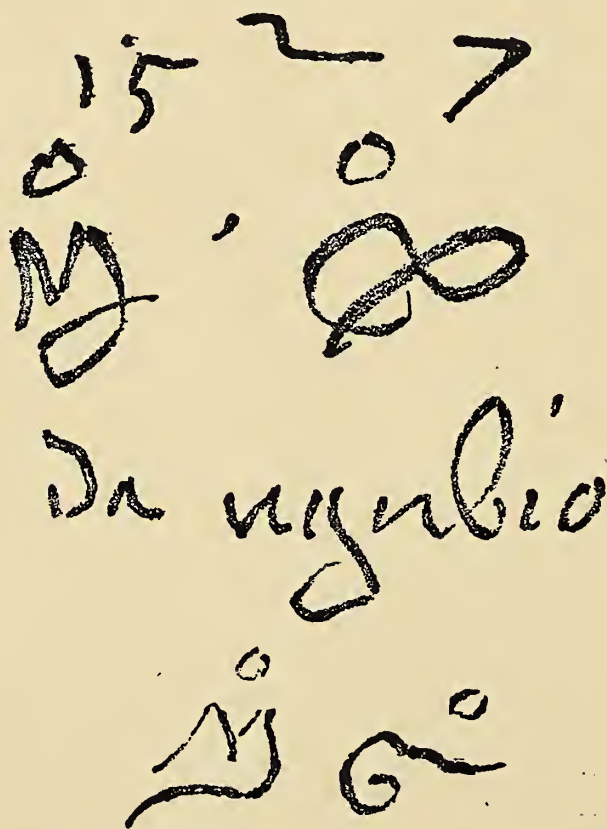 15 2 7
M° ' G°
Da ugubio '
M° G°